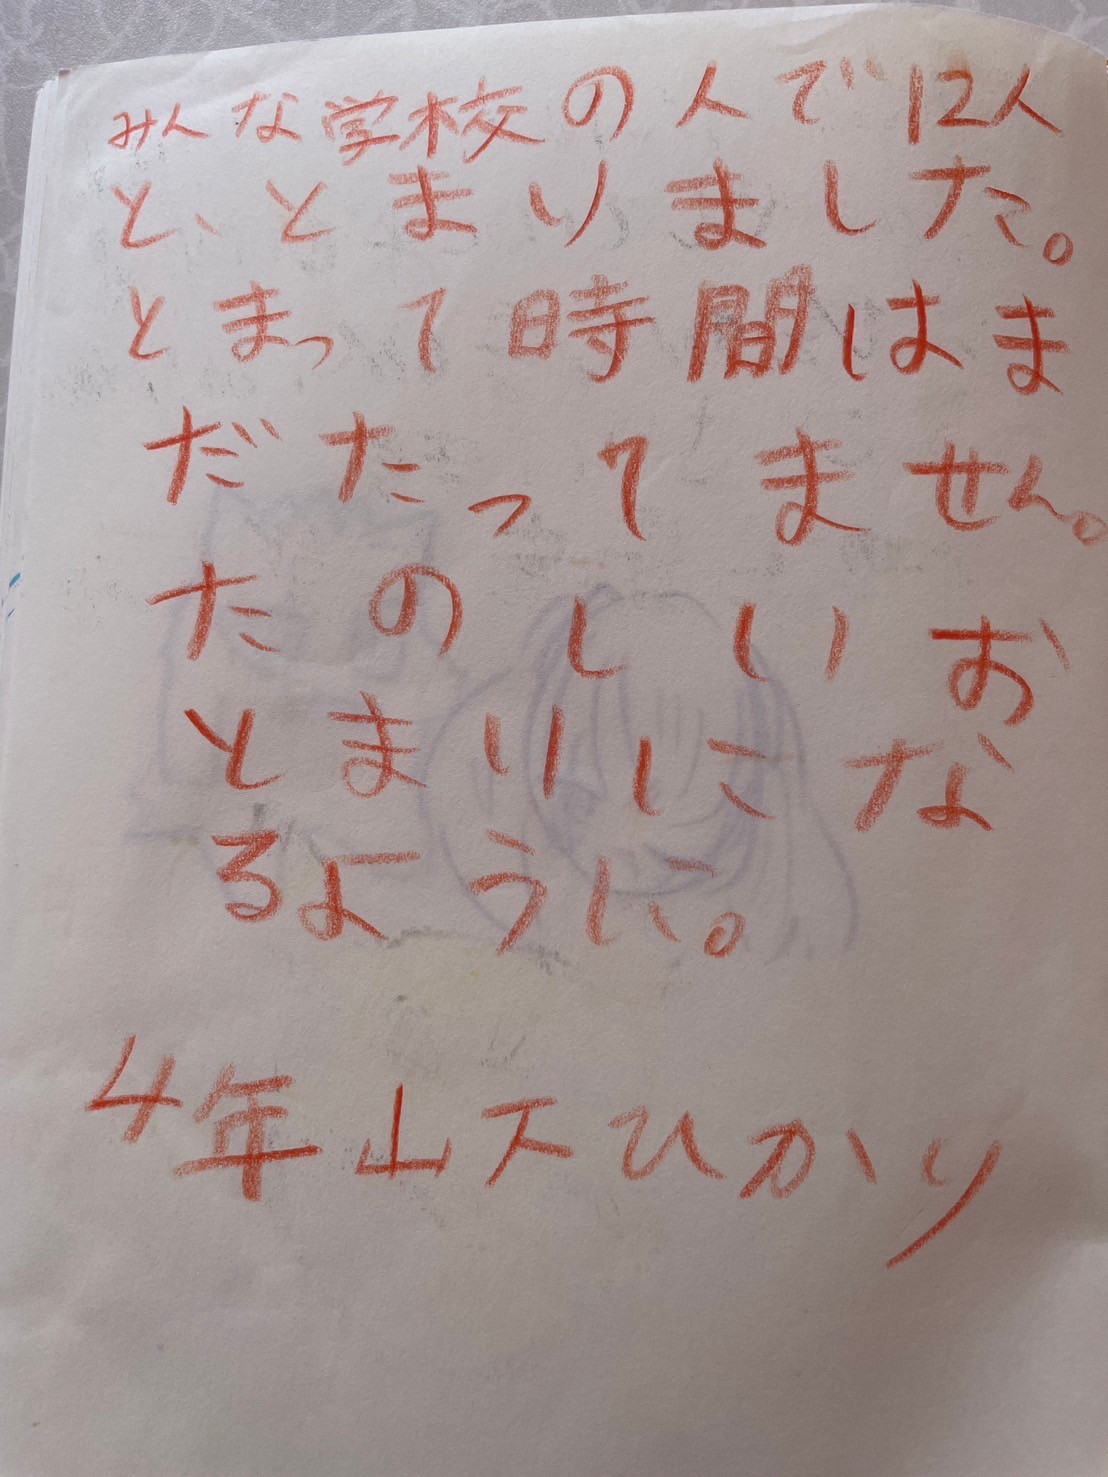 みんな学校の人で12人
と、とまりました。
とまって時間はま
だたってません。
たのしいお
とまりにな
るように。
4年山下ひかり